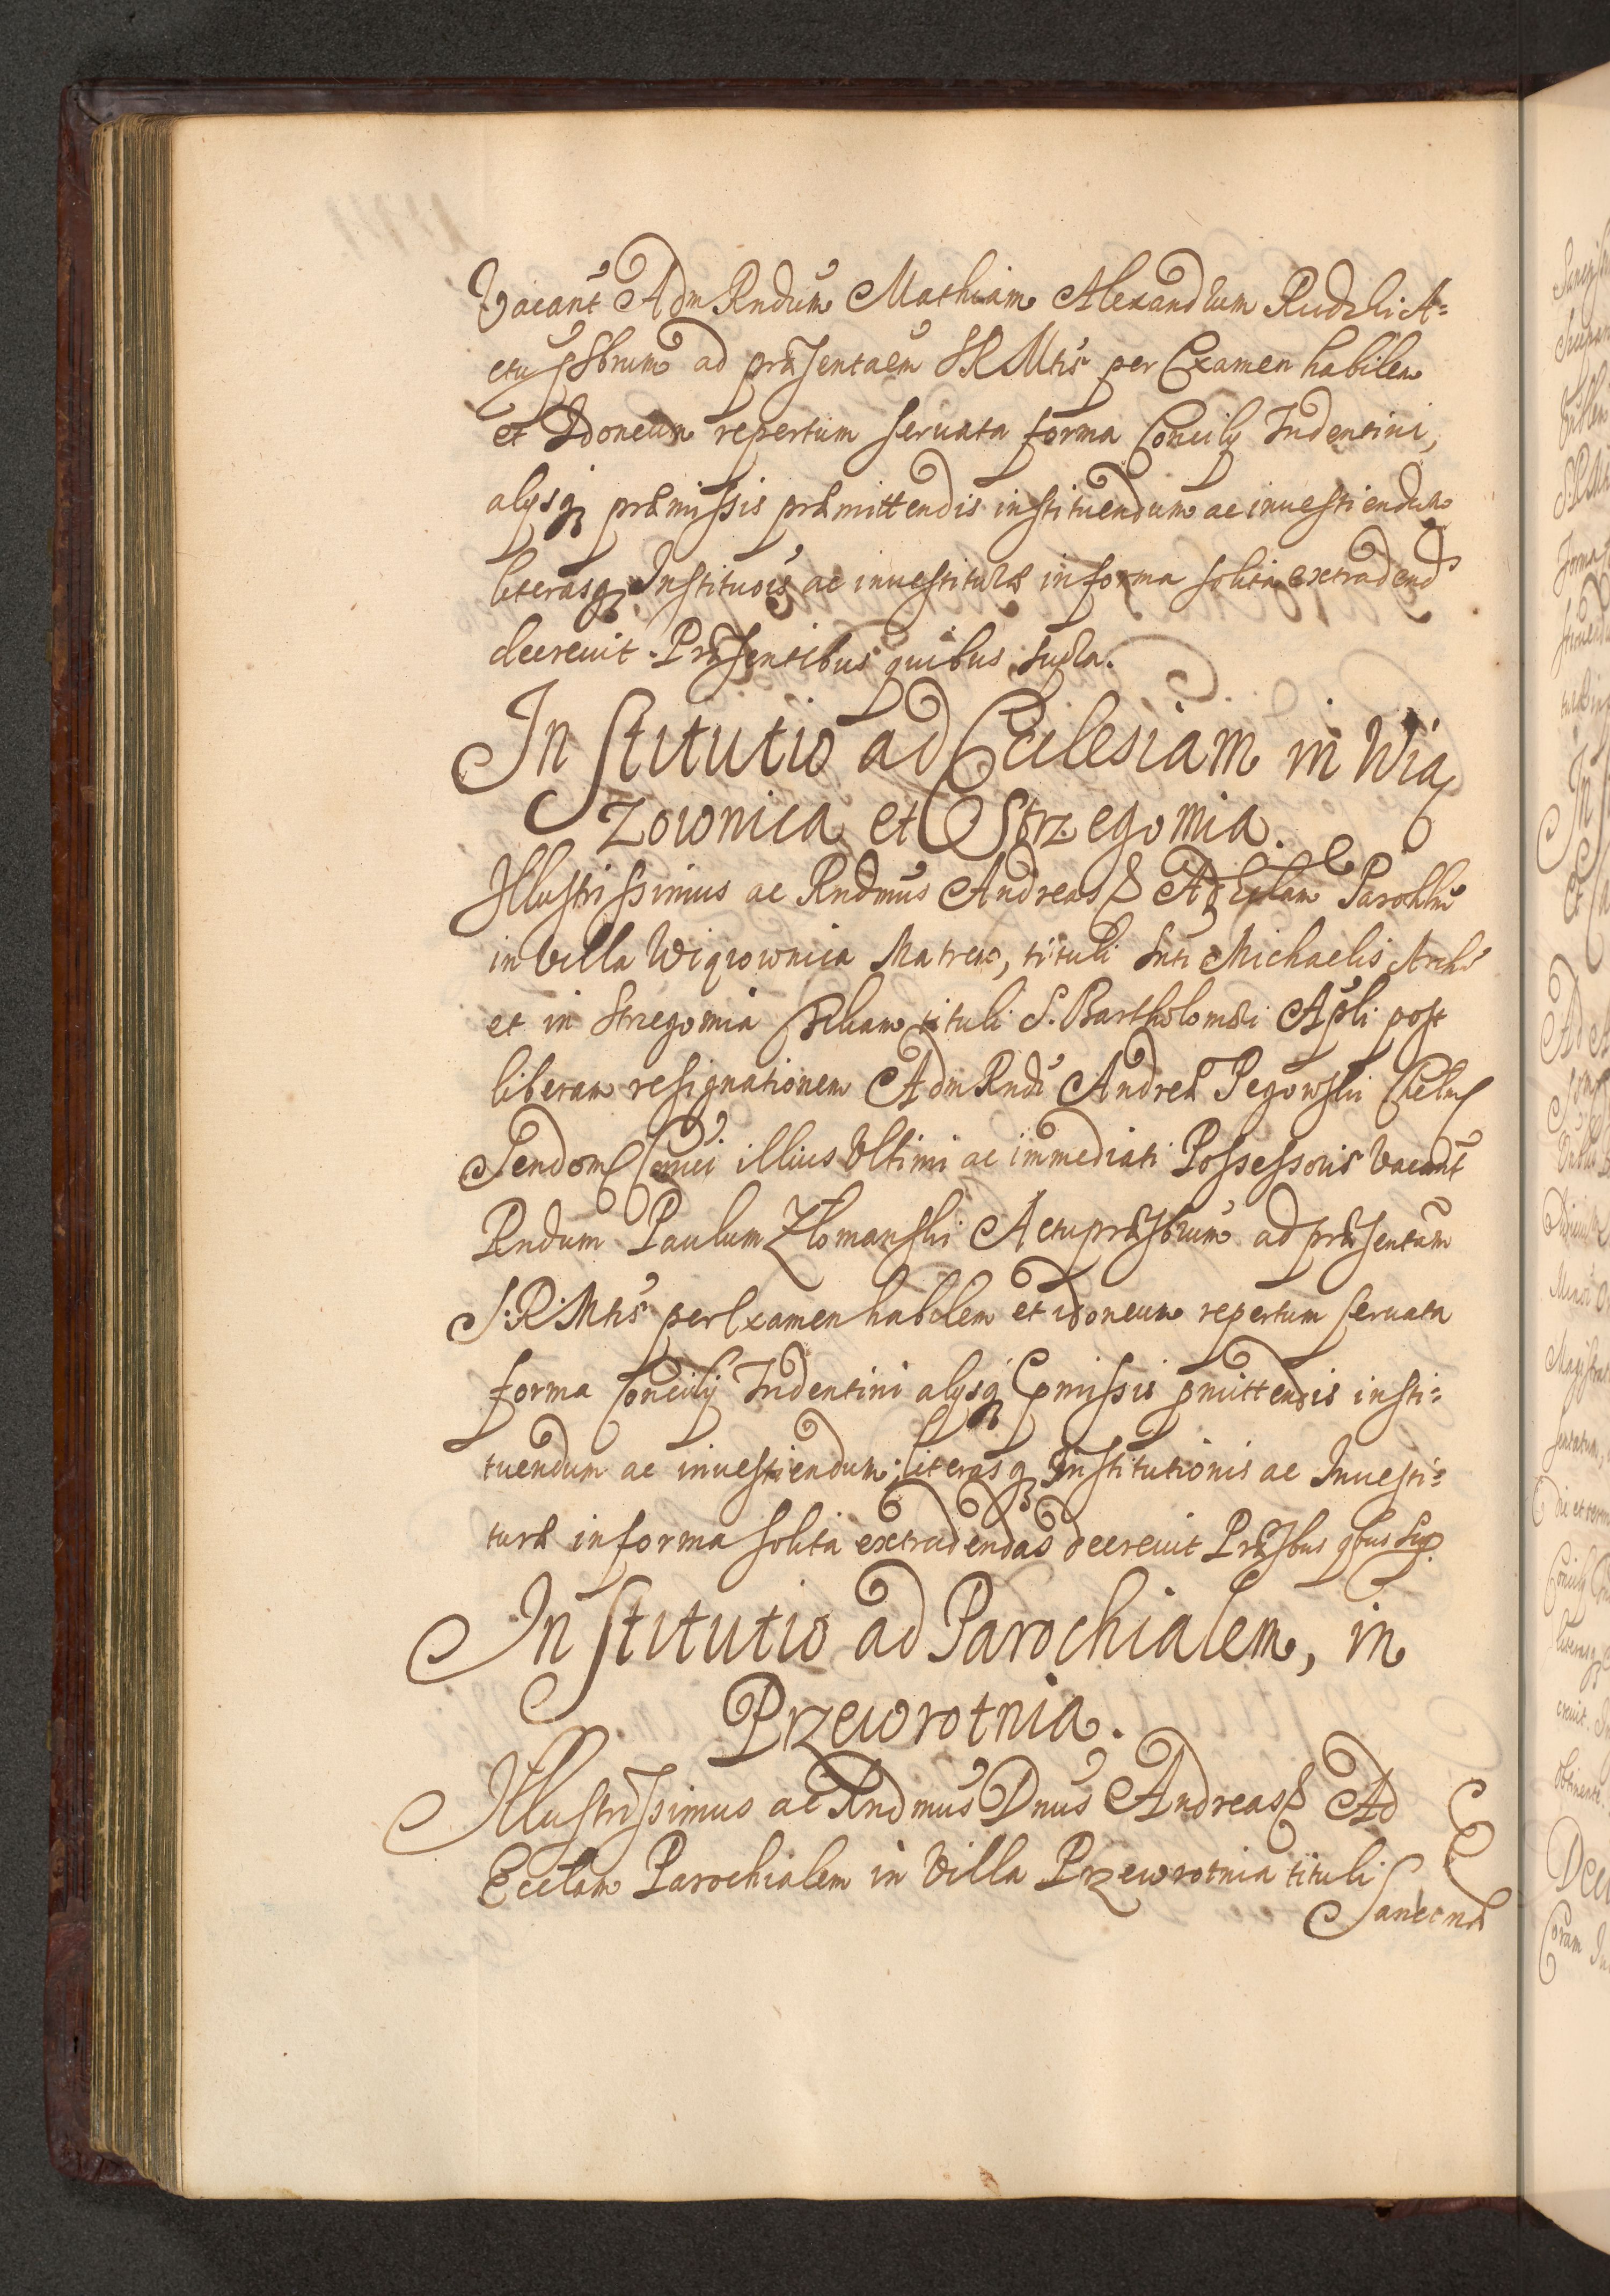 Vacant Adm Rndum Mathiam Alexandrum Rudzki A=
ctu Psbrum ad præsentaem SRMtis per Examen habilem
et Idoneum repertum seruata forma Concilij Tridentini,
alysq præmissis præmittendis instituendum ac inuestiendum
literasq Instituois ac inuestituræ in forma solita extradend
decreuit. Præsentibus quibus supra.
Institutio ad Ecclesiam in Wią
zownica et Strzegomia.
Illustrissimus ac Rndmus Andreas & Ad Eclam Parochlm
in Villa Wiązownica Matrem, tituli Snti Michaelis Archi
et in Strzegomia filiam tituli S. Bartholomæi Apli post
liberam resignationem Adm Rndi Andreæ Pegowski
illius Ultimi ac immediati Possessoris Vacant
Rndum Paulum Zlomanski Actupræsbrum ad præsentam
S. R. Mtis per Examen habilem et idoneum repertum seruata
forma Concilij Tridentini alysq pmissis pmittendis insti=
tuendum ac inuestiendum, literasq Institutionis ac Inuesti=
turæ in forma solita extradendas decreuit Præsbus qbus sup.
Institutio ad Parochialem, in
Przewrotnia.
Illustrissimus ac Rndmus Dnus Andreas & Ad
Ecclam Parochialem in Villa Przewrotnia tituli